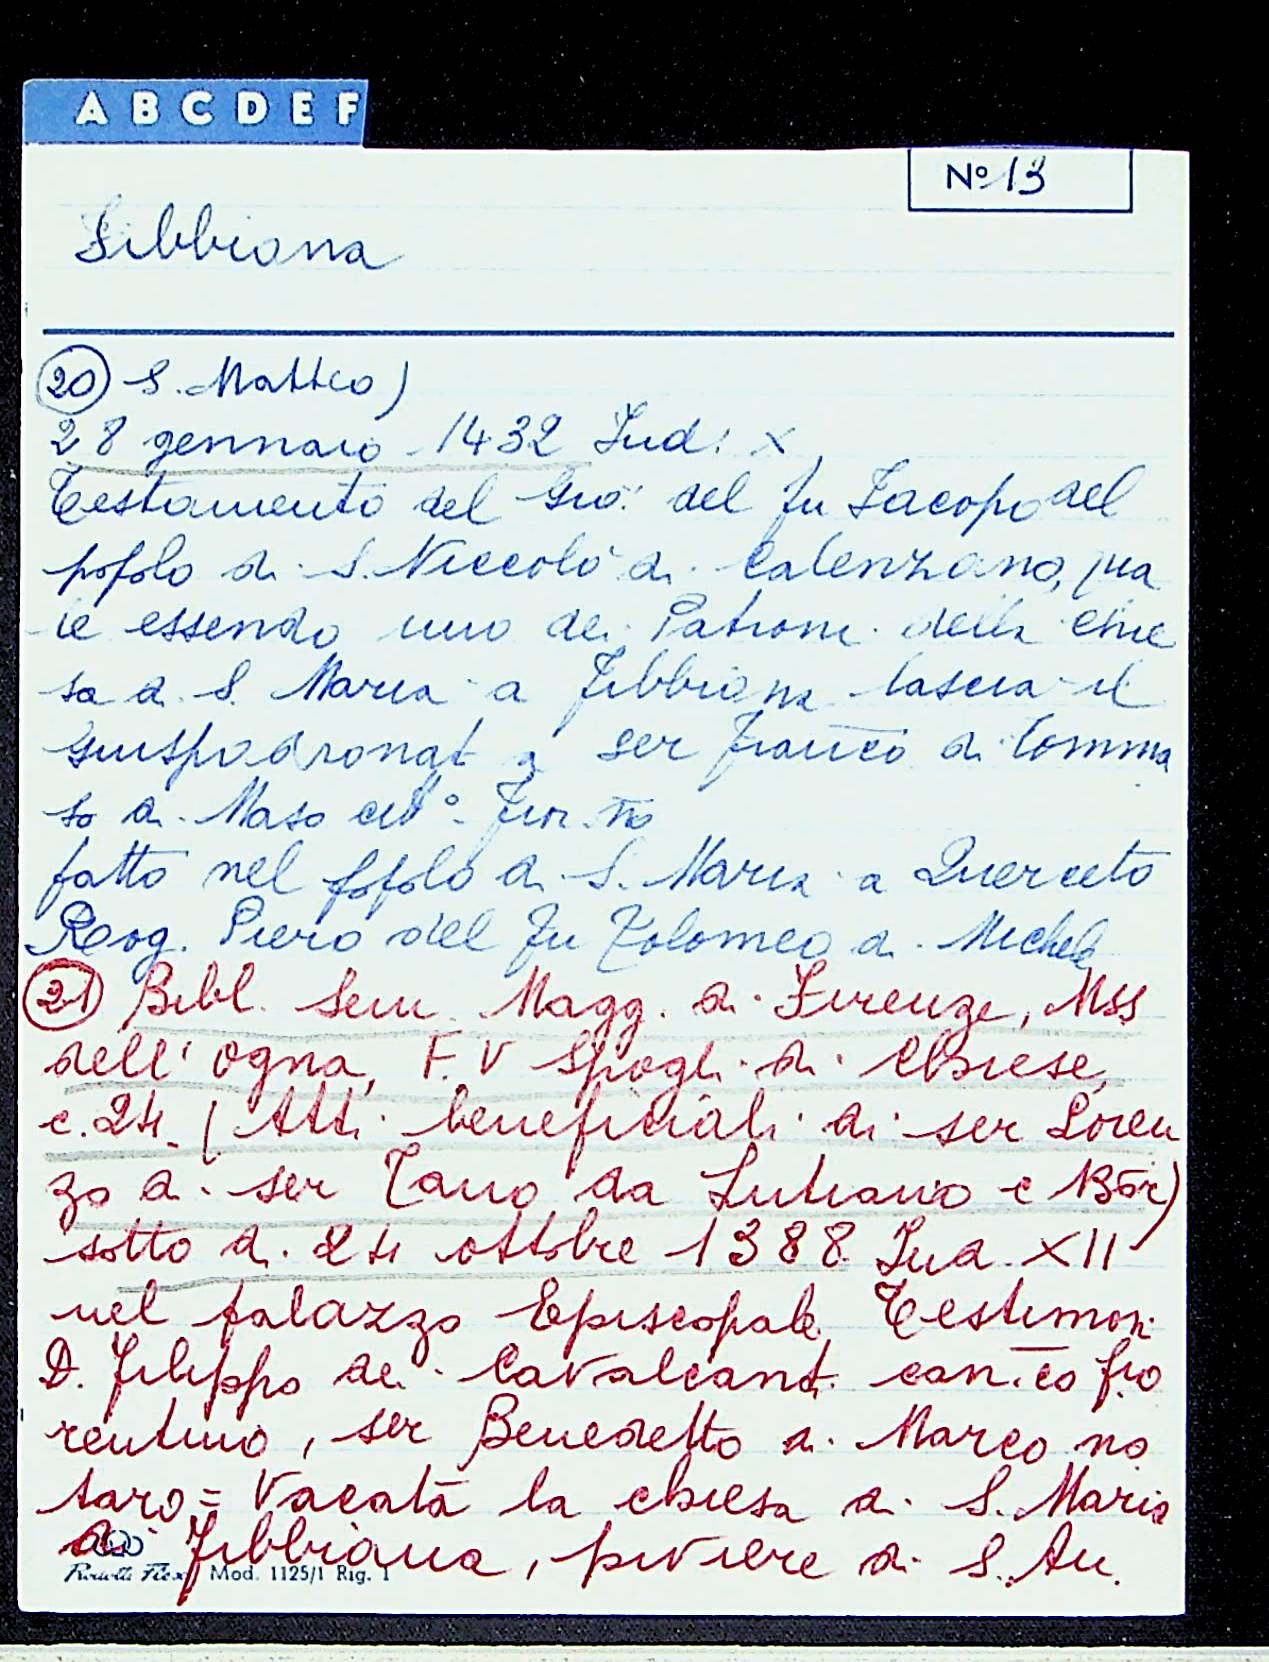 A B C D E F
Nº 13
Fibbiana
20 S. Matteo)
28 gennaio 1432 Ind. X
Testamento del Gio: del fu Iacopo del
popolo di S. Niccolò di Calenzano, qua
le essendo uno dei Patroni della chie
sa di S. Maria a Fibbiana lascia il
giuspadronat a ser Franco di Tomma
so di Maso citt° fior.no
fatto nel popolo di S. Maria a Querceto
Rog. Piero del fu Tolomeo di Michele
21 Bibl. Sem. Magg. di Firenze, Mss
dell'Ogna, F. V Spogli di Chiese,
c. 24. (Atti beneficiali di ser Loren
zo di ser Tano da Lutiano e
sotto di 24 ottobre 1388 Ind. XII
nel palazzo Episcopale, Testimoni
D. Filippo dei Cavalcanti can.co fio
rentino, ser Benedetto di Marco no
taro = Vacata la chiesa di S. Maria
a Fibbiana, piviere di S. An.
Mod. 1125/1 Rig. 1